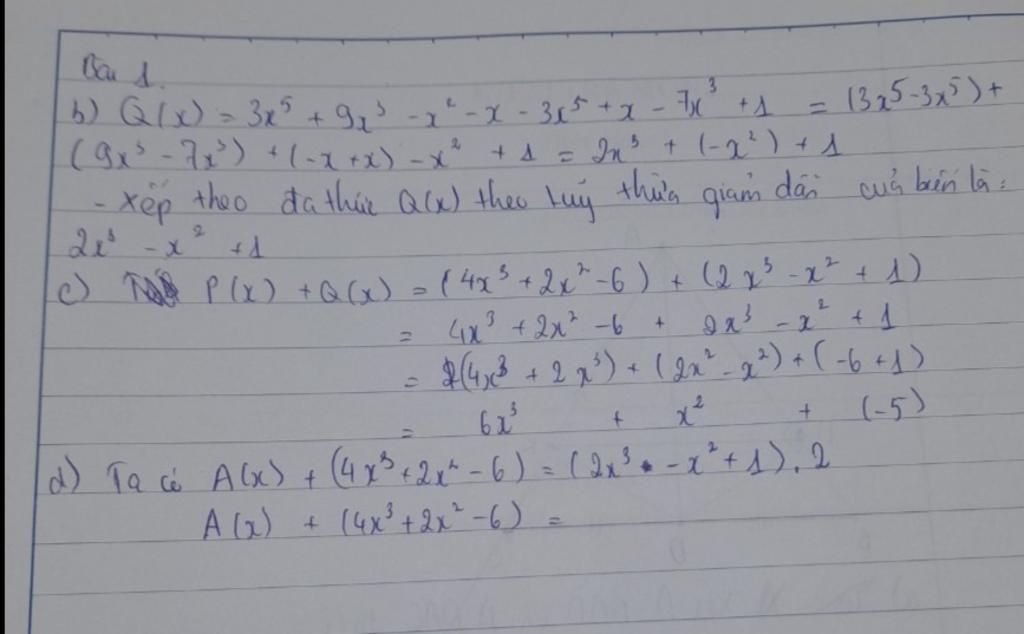 Bài 1.
b) Q(x) = 3x⁵ + 9x³ - x² - x - 3x⁵ + x - 7x³ + 1 = (3x⁵ - 3x⁵) +
(9x³ - 7x³) + (-x + x) - x² + 1 = 2x³ + (-x²) + 1
- xếp theo đa thức Q(x) theo luỹ thừa giảm dần của biến là:
2x³ - x² + 1
c) P(x) + Q(x) = (4x³ + 2x² - 6) + (2x³ - x² + 1)
= 4x³ + 2x² - 6 + 2x³ - x² + 1
= (4x³ + 2x³) + (2x² - x²) + (-6 + 1)
= 6x³ + x² + (-5)
d) Ta có A(x) + (4x³ + 2x² - 6) = (2x³ - x² + 1). 2
A(x) + (4x³ + 2x² - 6) =